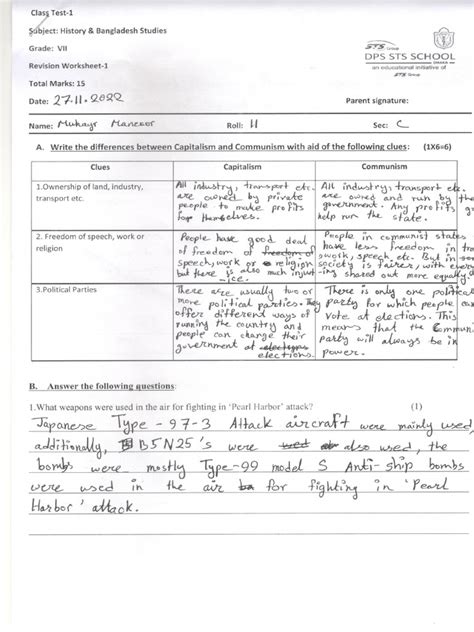 Class Test-1
Subject: History & Bangladesh Studies
Grade: VII
Revision Worksheet-1
Total Marks: 15
Date: 27.11.2022
STS Group
DPS STS SCHOOL
DHAKA
an educational initiative of
STS Group
Parent signature:
Name: Muhayr Manzoor Roll: 11 Sec: C
A. Write the differences between Capitalism and Communism with aid of the following clues: (1X6=6)
Clues Capitalism Communism
1.Ownership of land, industry, transport etc.
All industry, transport etc.
are owned by private
people to make profits
for themselves.
All industry, transport etc.
are owned and run by the
government. Any profits go
help run the state.
2. Freedom of speech, work or religion
People have good deal
of freedom of freedom of
speech, work or religion
but there is also much injust-
-ice.
People in communist states
have less freedom in tra
work, speech, etc. But in
society is fairer, with every
-ing shared out more equally
3.Political Parties
There are usually two or
more political parties. They
offer different ways of
running the country and
people can change their
government at elections
elections.
There is only one political
party for which people can
vote at elections. This
means that the Commun
party will always be in
power.
B. Answer the following questions:
1.What weapons were used in the air for fighting in 'Pearl Harbor' attack? (1)
Japanese Type-97-3 Attack aircraft were mainly used,
additionally, B5N25's were used also used, the
bombs were mostly Type-99 model S Anti-ship bombs
were used in the air for fighting in 'Pearl
Harbor' attack.